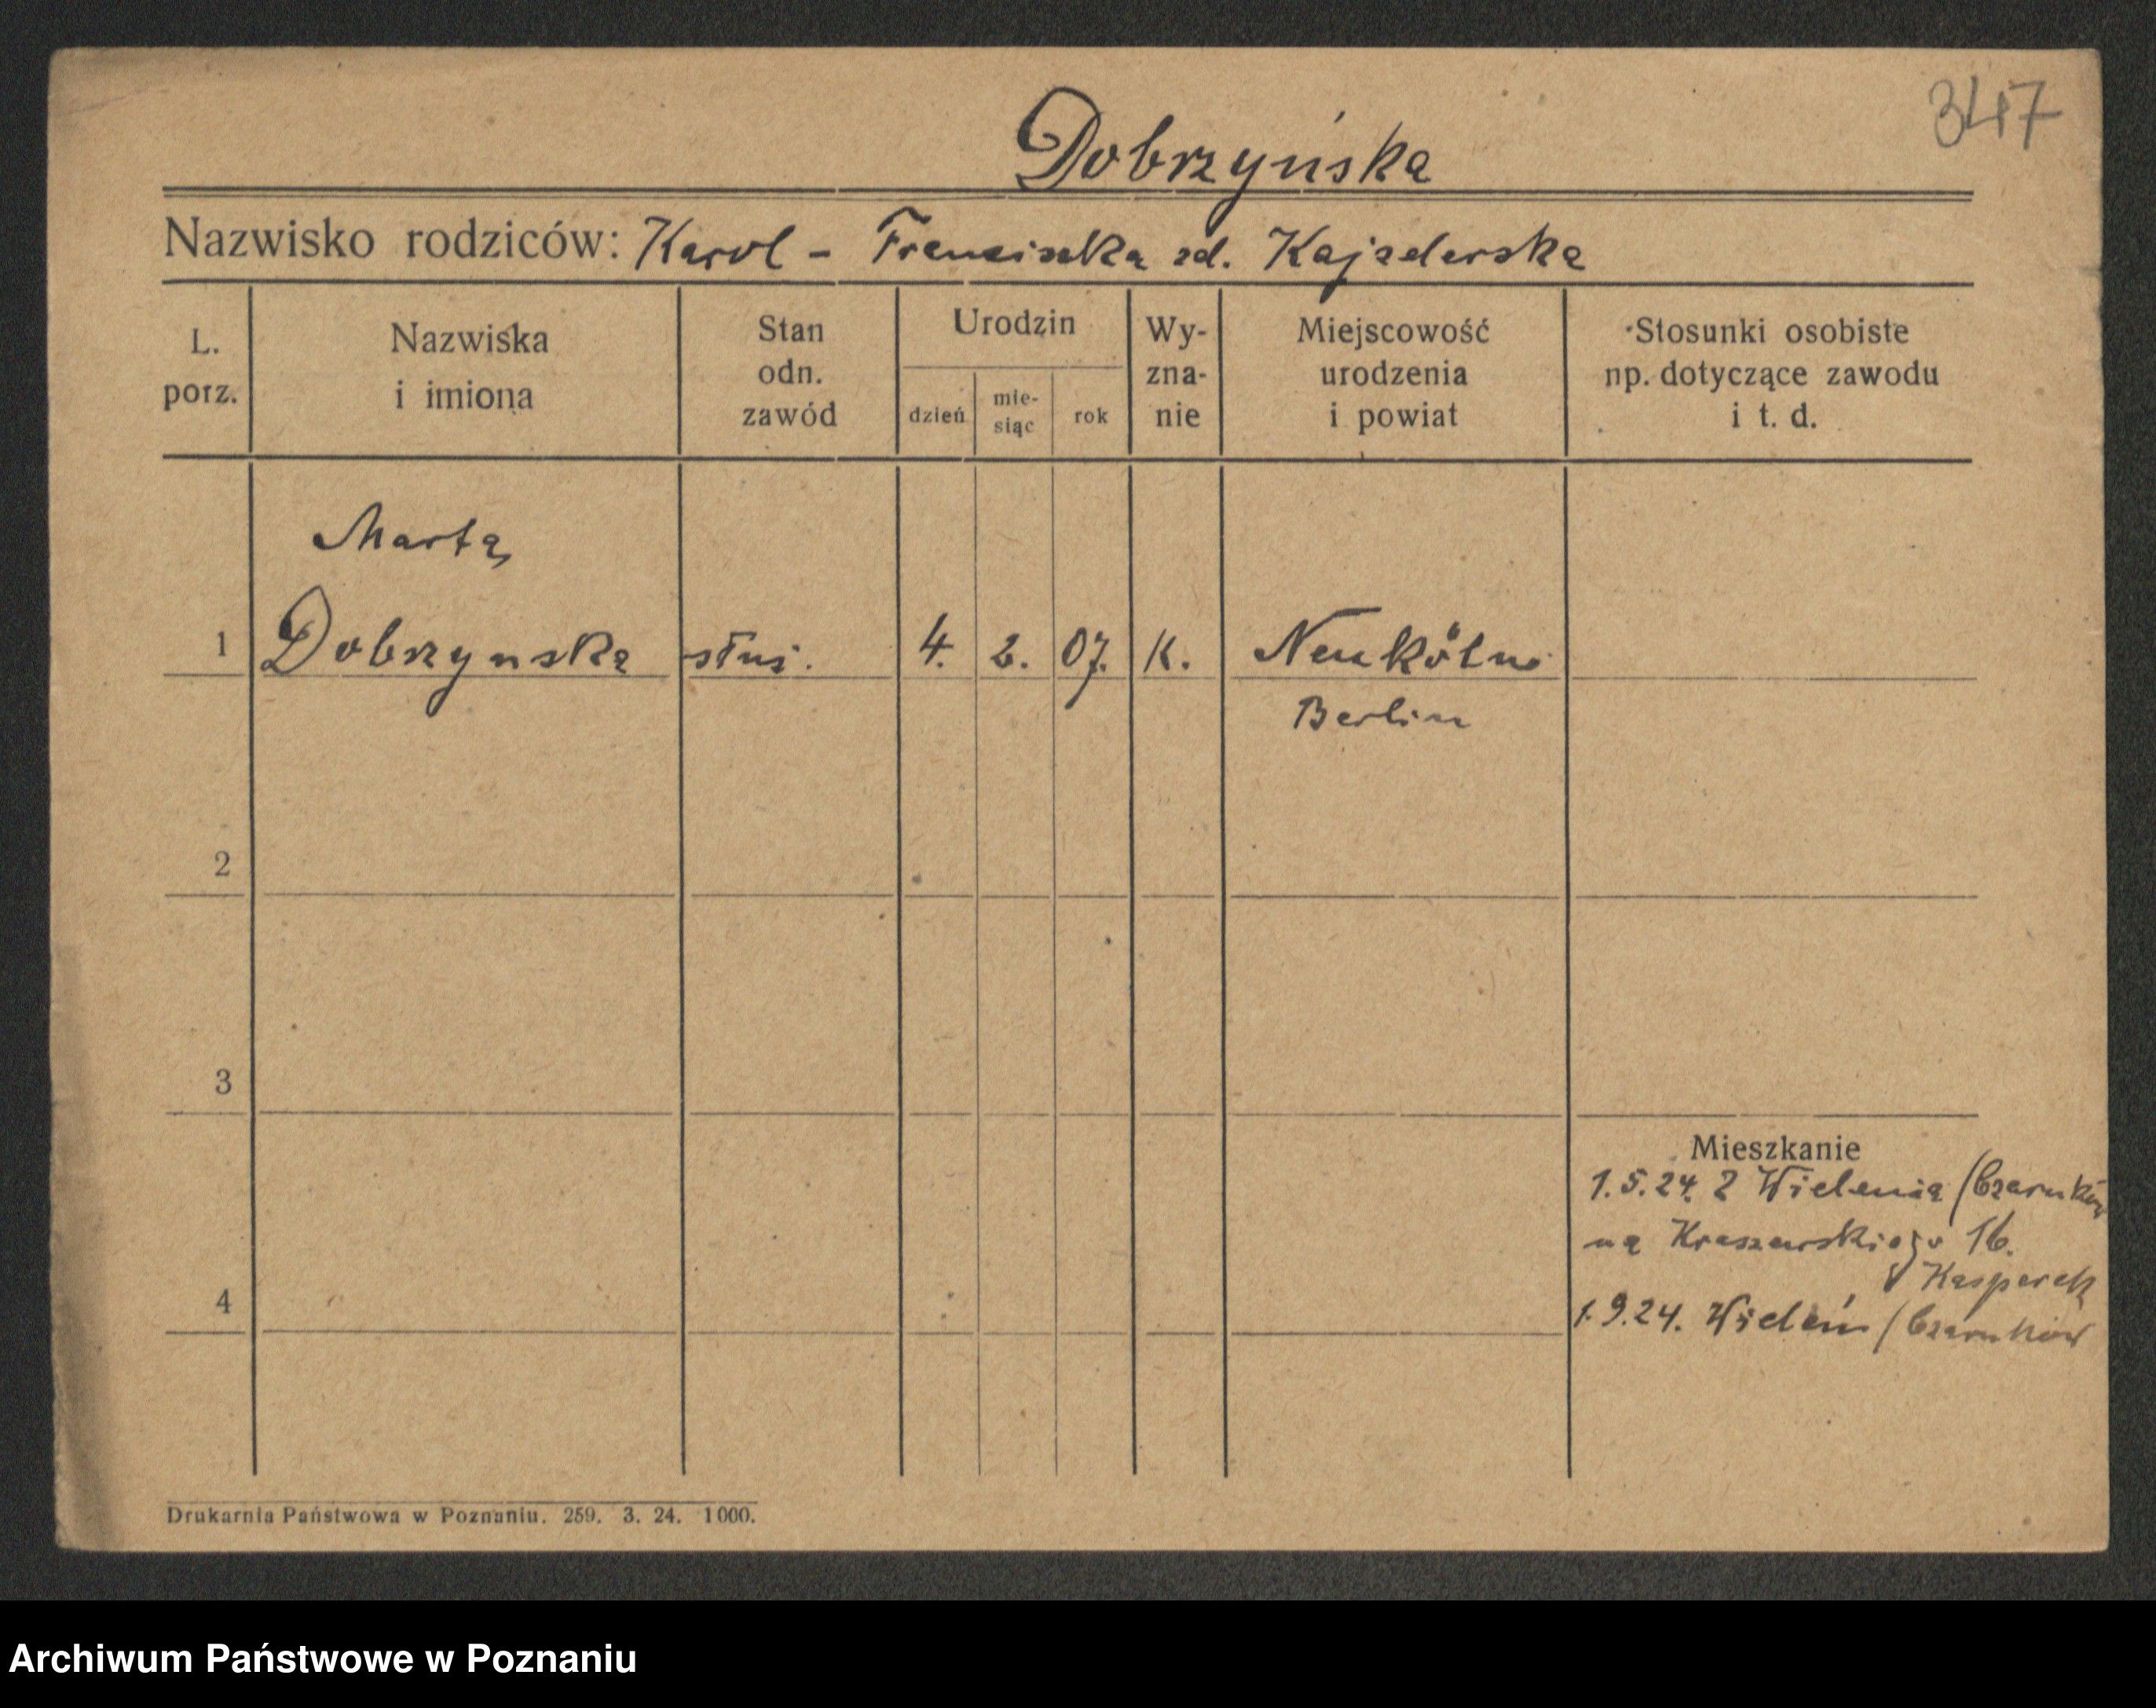 347
Dobrzyńska
Nazwisko rodziców: Karol - Franciszka zd.
L. porz.
Nazwiska i imiona
Stan odn. zawód
Urodzin
dzień
mie-siąc
rok
Wy-zna-nie
Miejscowość urodzenia i powiat
Stosunki osobiste np. dotyczące zawodu i t. d.
Marta
1 Dobrzynska służ. 4. 2. 07. K. Neukölne
Berlin
2
3
Mieszkanie
1.5.24. z Wielenia (Czarnków
na Kraszewskiego 16.
Kasperek
4
1.9.24. Wieleń (Czarnków
Drukarnia Państwowa w Poznaniu. 259. 3. 24. 1000.
Archiwum Państwowe w Poznaniu